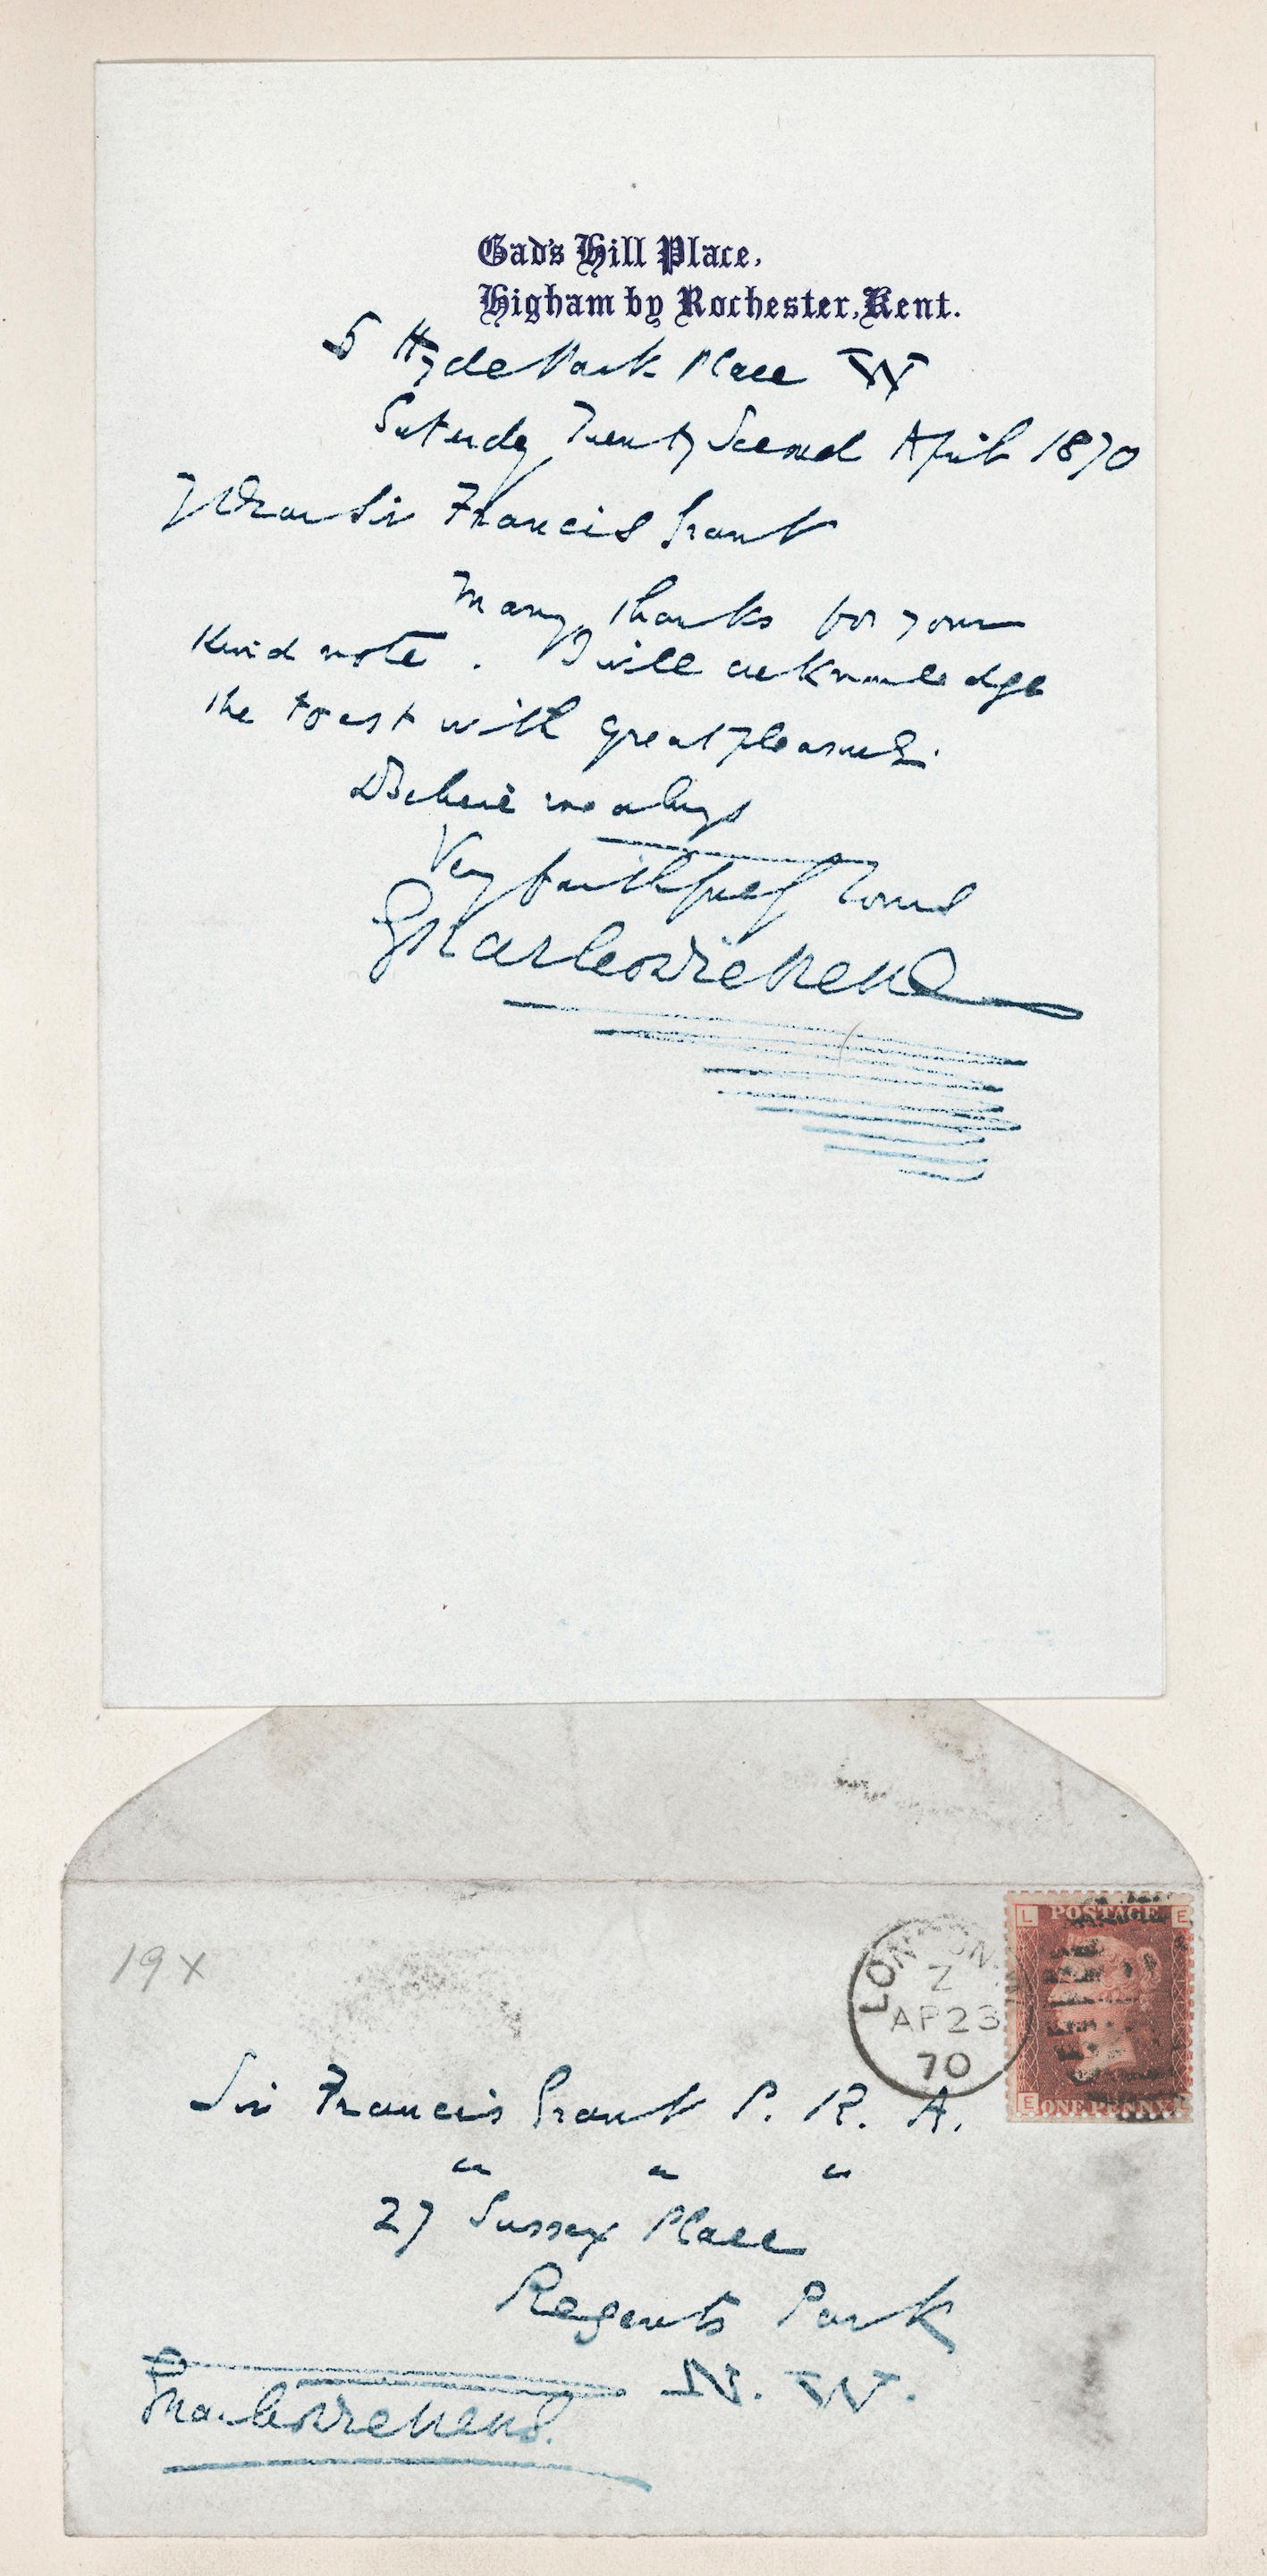 Gad's Hill Place,
Higham by Rochester, Kent.
5 Hyde Park Place W
Saturday Twenty Second April 1870
My Dear Sir Francis Grant
Many thanks for your
kind note. I will acknowledge
the toast with great pleasure.
Believe me always
Very faithfully Yours
Charles Dickens
19 x
LONDON.N.W
Z
AP 23
70
L POSTAGE E
E ONE PENNY L
Sir Francis Grant P. R. A.
" " "
27 Sussex Place
Regents Park
N. W.
Charles Dickens.